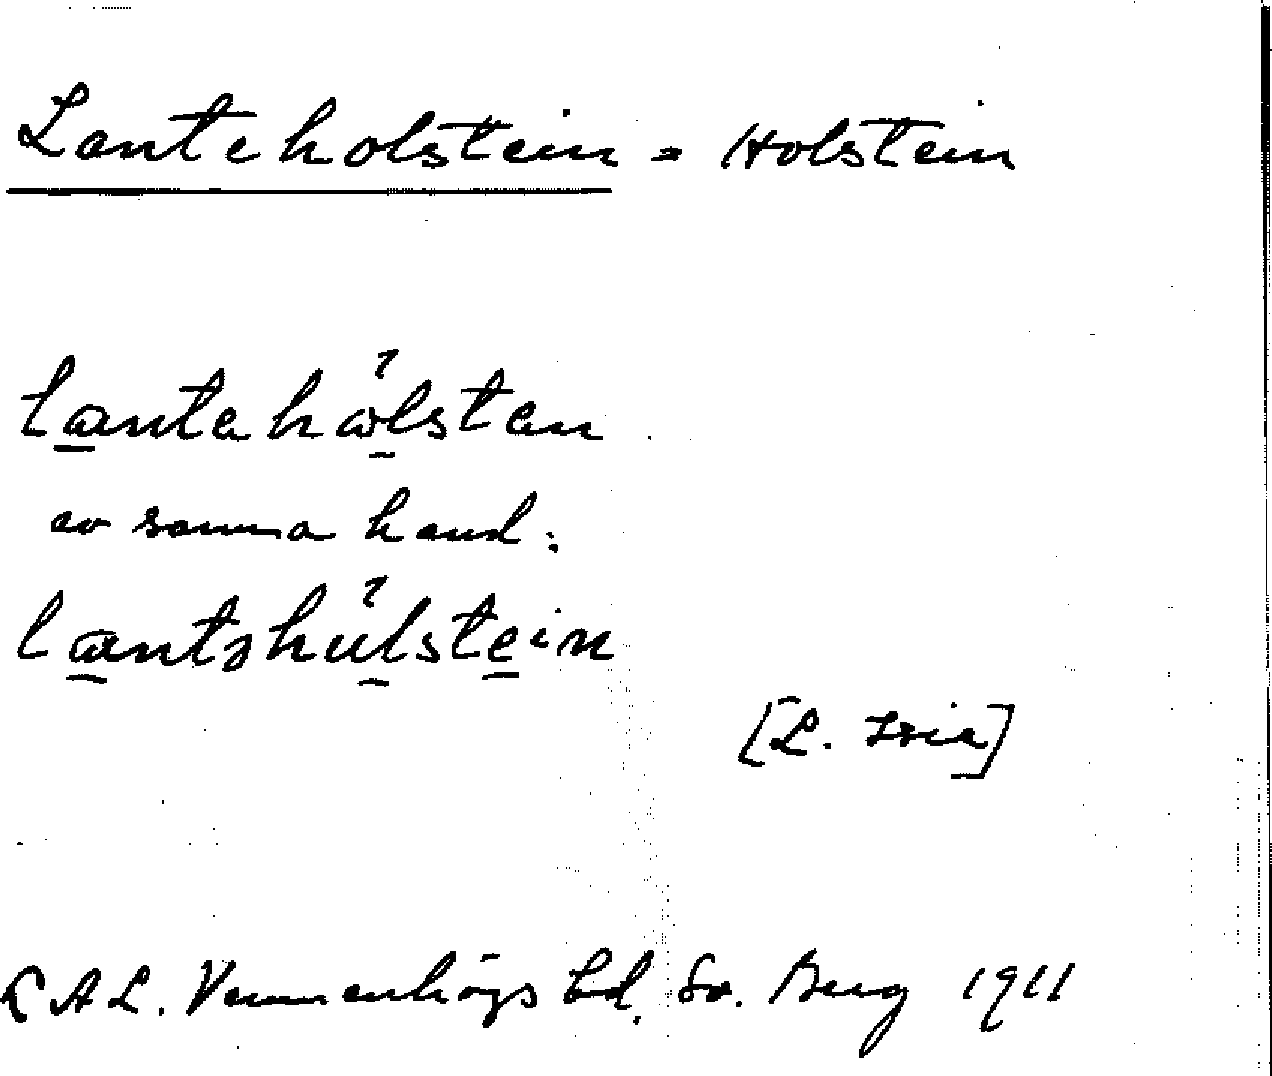 Lanteholstein = Holstein
lantahålsten
av samma hand:
lantshulstein
[L.
LAL. Vemmenhögs hd. Sv. Berg 1911